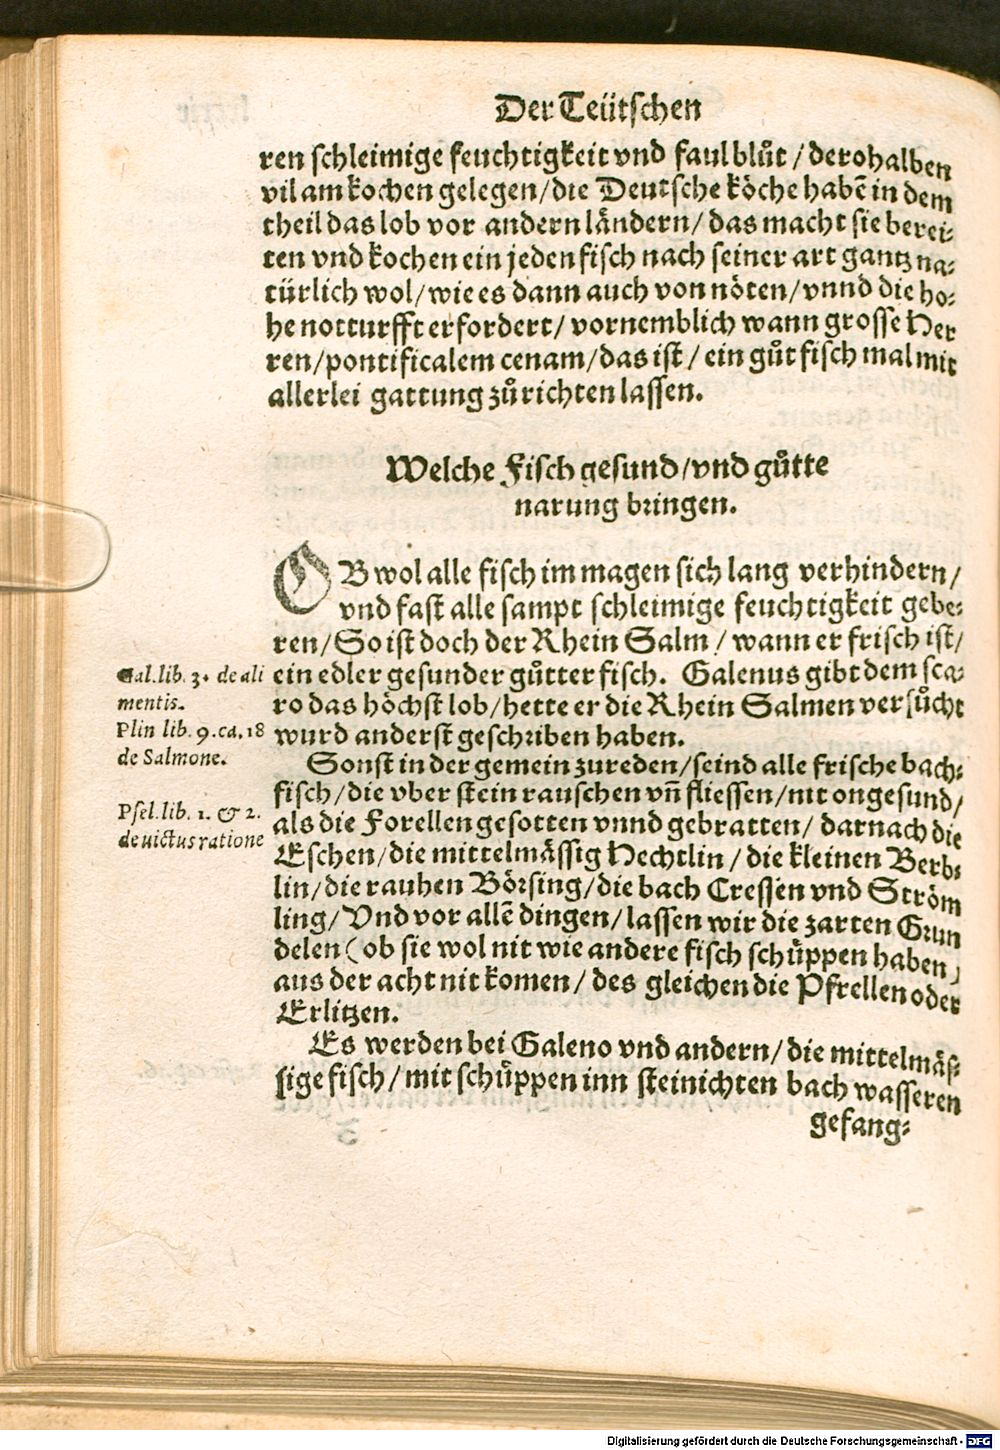 Der Teütschen
ren schleimige feuchtigkeit vnd faul blůt / derohalben
vil am kochen gelegen/die Deutsche köche habē in dem
theil das lob vor andern ländern/ das macht sie berei⸗
ten vnd kochen ein jeden fisch nach seiner art gantz na⸗
türlich wol/wie es dann auch von nöten/vnnd die ho⸗
he notturfft erfordert/ vornemblich wann grosse Her
ren/pontificalem cenam/das ist / ein gůt fisch mal mit
allerlei gattung zůrichten lassen.
Welche Fisch gesund/vnd gůtte
narung bringen.
OB wol alle fisch im magen sich lang verhindern/
vnd fast alle sampt schleimige feuchtigkeit gebe⸗
ren/So ist doch der Rhein Salm / wann er frisch ist/
ein edler gesunder gůtter fisch. Galenus gibt dem sca⸗
ro das höchst lob/hette er die Rhein Salmen versůcht
wurd anderst geschriben haben.
Gal.lib. 3. de ali
mentis.
Plin lib. 9.ca.18
de Salmone.
Sonst in der gemein zureden/seind alle frische bach⸗
fisch/die vber stein rauschen vn̄ fliessen/nit ongesund/
als die Forellen gesotten vnnd gebratten/ darnach die
Eschen/die mittelmässig Hechtlin / die kleinen Berb⸗
lin/die rauhen Börsing/die bach Cressen vnd Ström
ling/Vnd vor allē dingen/lassen wir die zarten Grun
delen (ob sie wol nit wie andere fisch schůppen haben)
aus der acht nit komen/ des gleichen die Pfrellen oder
Erlitzen.
Psel.lib. 1. & 2.
de uictus ratione
Es werden bei Galeno vnd andern/ die mittelmäs⸗
sige fisch/mit schůppen inn steinichten bach wasseren
gefang⸗
Digitalisierung gefördert durch die Deutsche Forschungsgemeinschaft - DFG